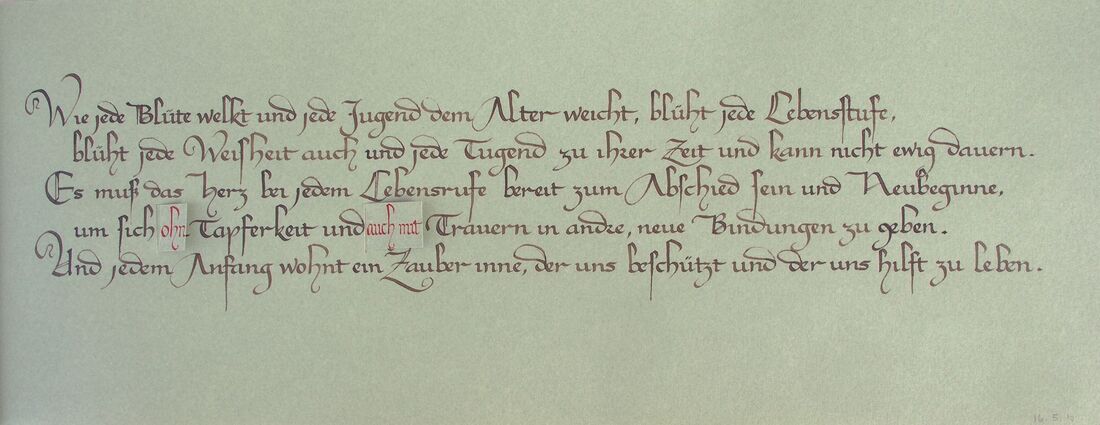 Wie jede Blüte welkt und jede Jugend dem Alter weicht, blüht jede Lebensstufe,
blüht jede Weisheit auch und jede Tugend zu ihrer Zeit und kann nicht ewig dauern.
Es muß das Herz bei jedem Lebensrufe bereit zum Abschied sein und Neubeginne,
um sich ohn Tapferkeit und auch mit Trauern in andre, neue Bindungen zu geben.
Und jedem Anfang wohnt ein Zauber inne, der uns beschützt und der uns hilft zu leben.
16. 5.